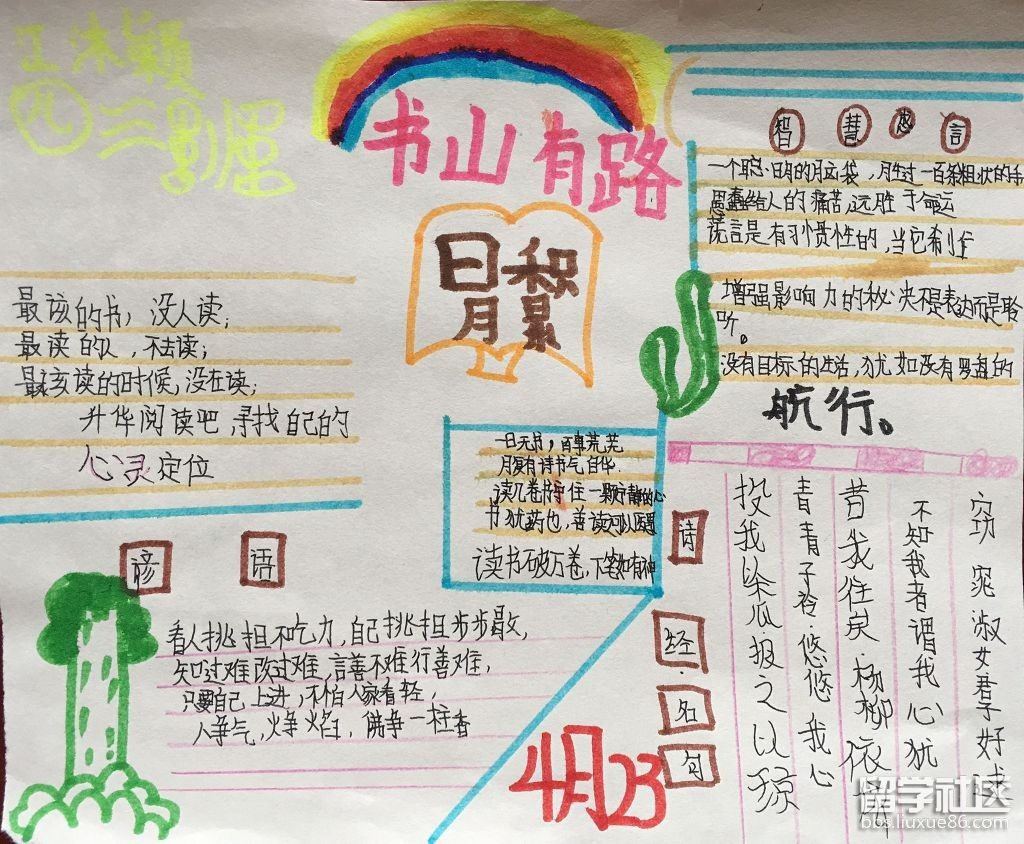 书山有路
日积
月累
智慧之言
一个聪明的脑袋，胜过一百条粗状的手
愚蠢给人的痛苦远胜于命运
谎言是有习惯性的，当它利
增强影响力的秘决不是表达而是聆
听。
没有目标的生活，犹如没有罗盘的
航行。
最该的书，没人读；
最读的人，不去读；
最该读的时候，没在读；
升华阅读吧，寻找自己的
心灵定位
一日无书，百事荒芜
月复有诗书气自华.
读几卷书守住一颗宁静的心
书犹药也，善读可以医愚
读书破万卷，下笔如有神
谚语
看人挑担不吃力，自己挑担步步歇，
知过难改过难，言善不难行善难，
只要自己上进，不怕人家看轻，
人争气，火争焰，佛争一柱香
诗经名句
窈窕淑女君子好逑
不知我者谓我心犹
昔我往矣·杨柳依
青青子衿·悠悠我心
投我木瓜·报之以琼
4月23
留学社区
bbs.liuxue86.com